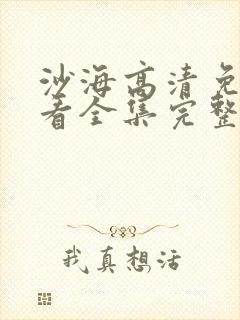 沙海高清免
看全集完整
我真想活